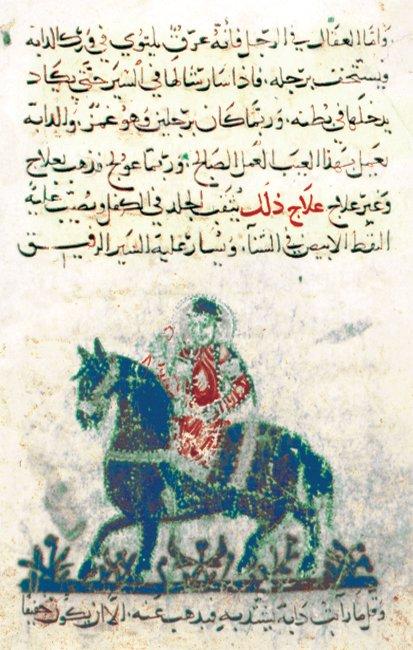 واما العقال في الرجل فانه عرق يلتوي في ورك الدابة
ويستخف برجله فاذا سار شالها في السير حتى يكاد
يدخلها في بطنه وربما كان برجلين وهو عمز والدابة
يعمل بهذا العيب العمل الصالح وربما عولج فذهب بعلاج
وغير علاج علاج ذلك يثقب الجلد في الكفل ويصب عليه
النفط الابيض في الشتاء ويسار عليه السير الرفيق
وقل ما رايت دابة يشتد به فيذهب عنه الا ان يكون خفيفا